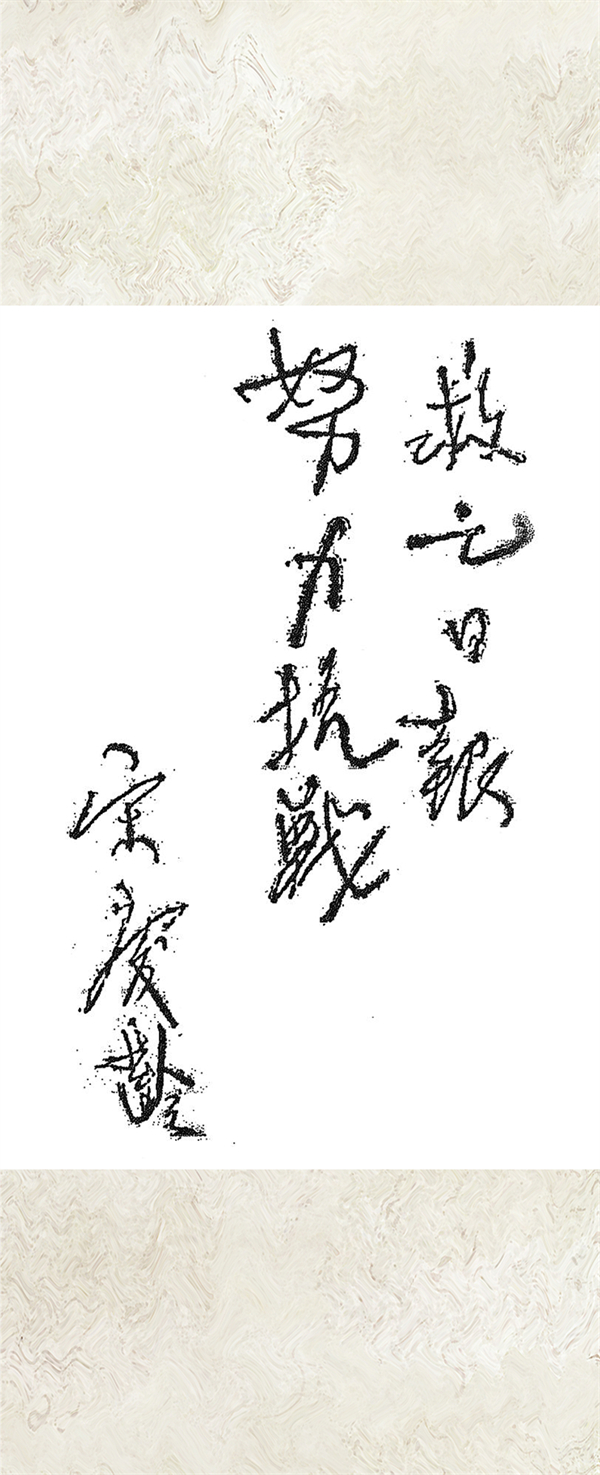 救亡日報
努力抗戰
宋慶齡